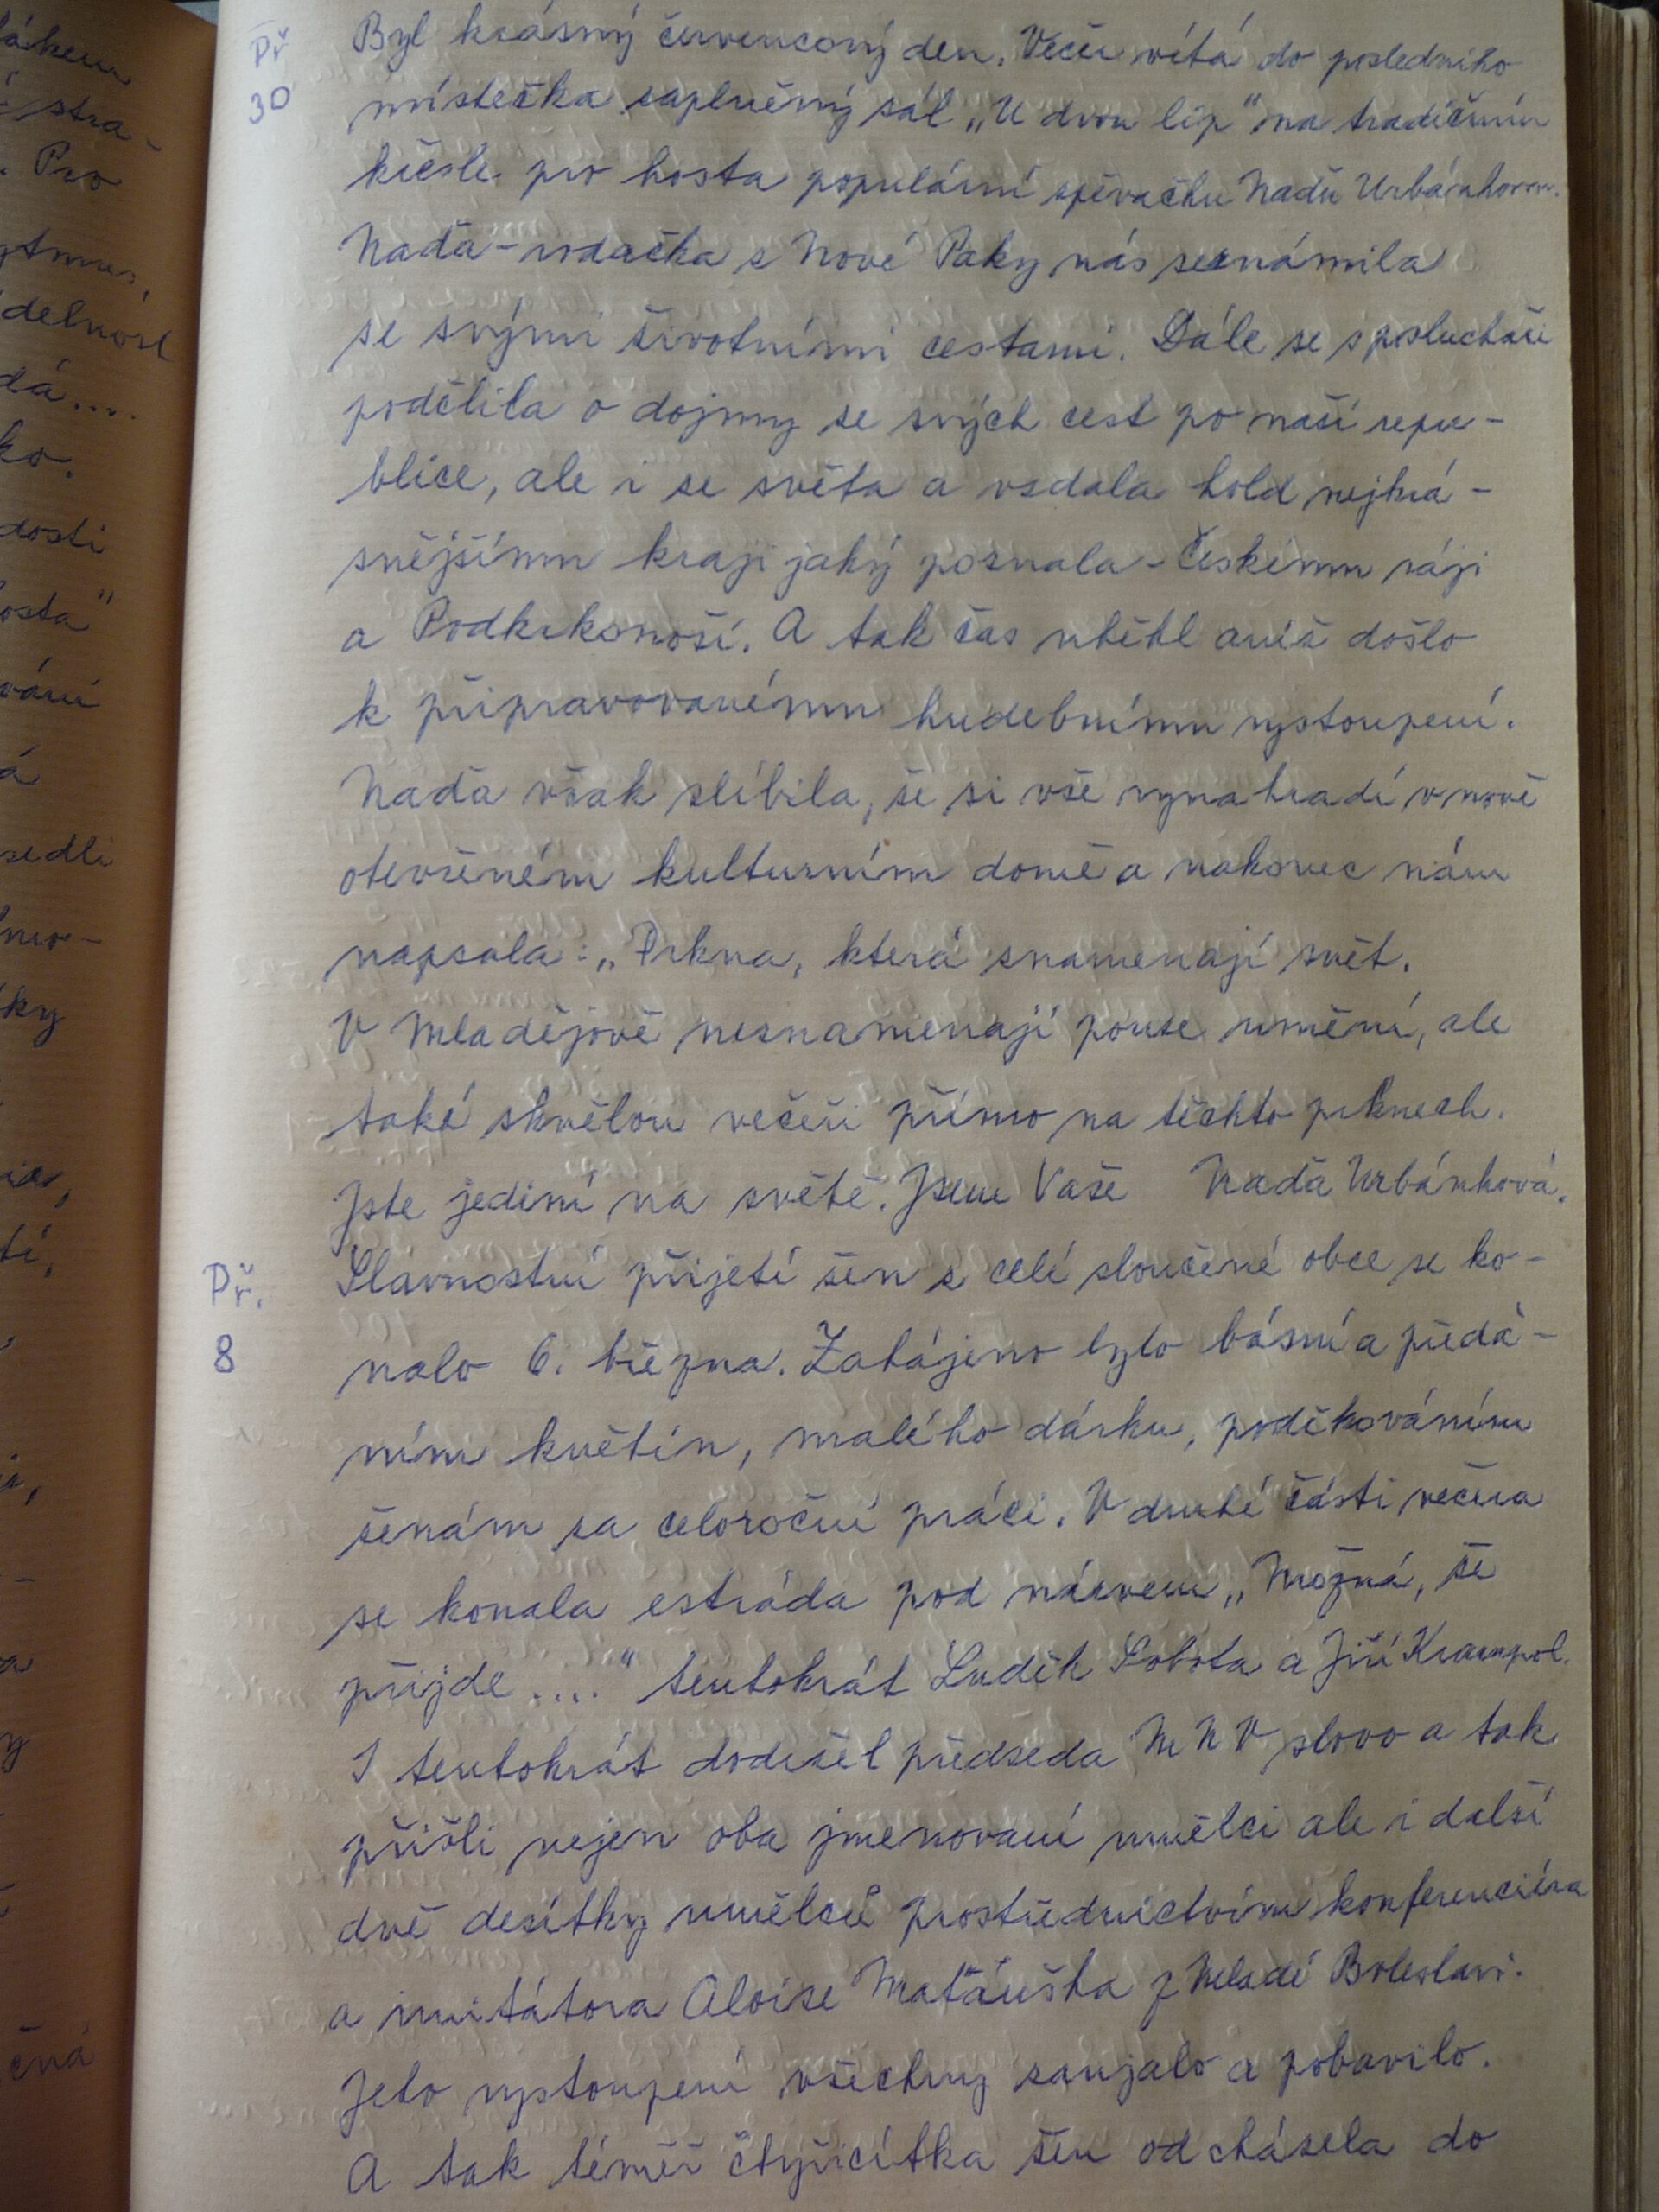 Př
30
Byl krásný červencový den. Večer vítá do posledního
místečka zaplněný sál „U dvou lip" na tradičním
křesle pro hosta populární zpěvačku Naďu Urbánkovou.
Naďa - rodačka z Nové Paky nás seznámila
se svými životními cestami. Dále se s posluchači
podělila o dojmy ze svých cest po naší repu-
blice, ale i ze světa a vzdala hold nejkrá-
snějšímu kraji jaký poznala - Českému ráji
a Podkrkonoší. A tak čas uběhl aniž došlo
k připravovanému hudebnímu vystoupení.
Naďa však slíbila, že si vše vynahradí v nově
otevřeném kulturním domě a nakonec nám
napsala: „Prkna, která znamenají svět.
V Mladějově neznamenají pouze umění, ale
také skvělou večeři přímo na těchto prknech.
Jste jediní na světě. Jsem Vaše Naďa Urbánková.
Př.
8
Slavnostní přijetí žen z celé sloučené obce se ko-
nalo 6. března. Zahájeno bylo básní a předá-
ním květin, malého dárku, poděkováním
ženám za celoroční práci. V druhé části večera
se konala estráda pod názvem „Možná, že
přijde ...." tentokrát Luděk Sobota a Jiří Krampol.
I tentokrát dodržel předseda MNV slovo a tak
přišli nejen oba jmenovaní umělci ale i další
dvě desítky umělců prostřednictvím konferenciéra
a imitátora Aloise Maťáuška z Mladé Boleslavi.
Jeho vystoupení všechny zaujalo a pobavilo.
A tak téměř čtyřicítka žen odcházela do